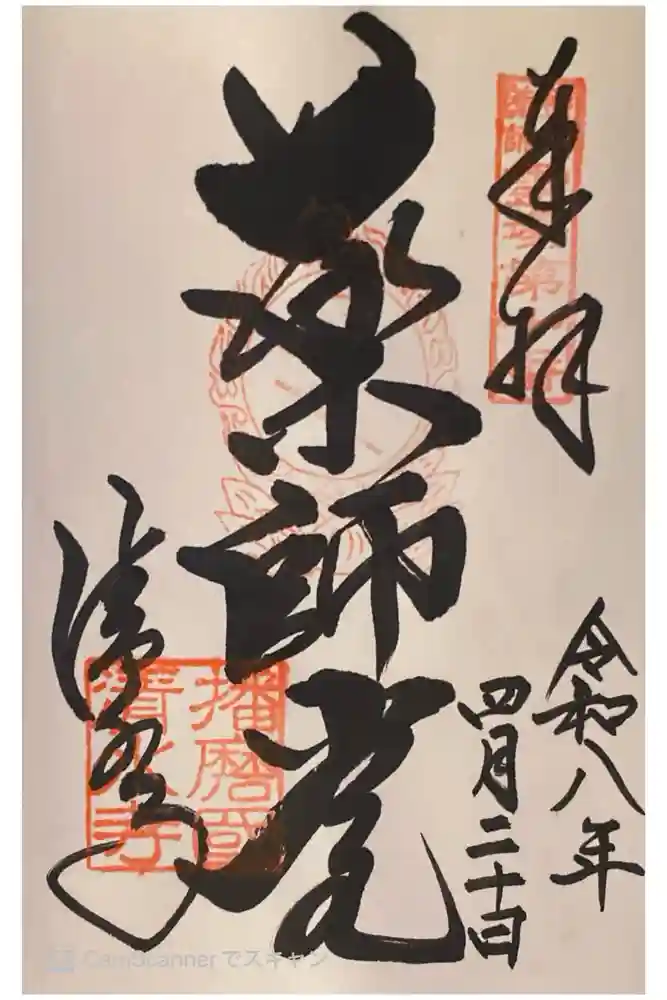 奉拝
令和八年
四月二十日
薬師堂
清水寺
播磨國
清水寺
CamScanner でスキャン